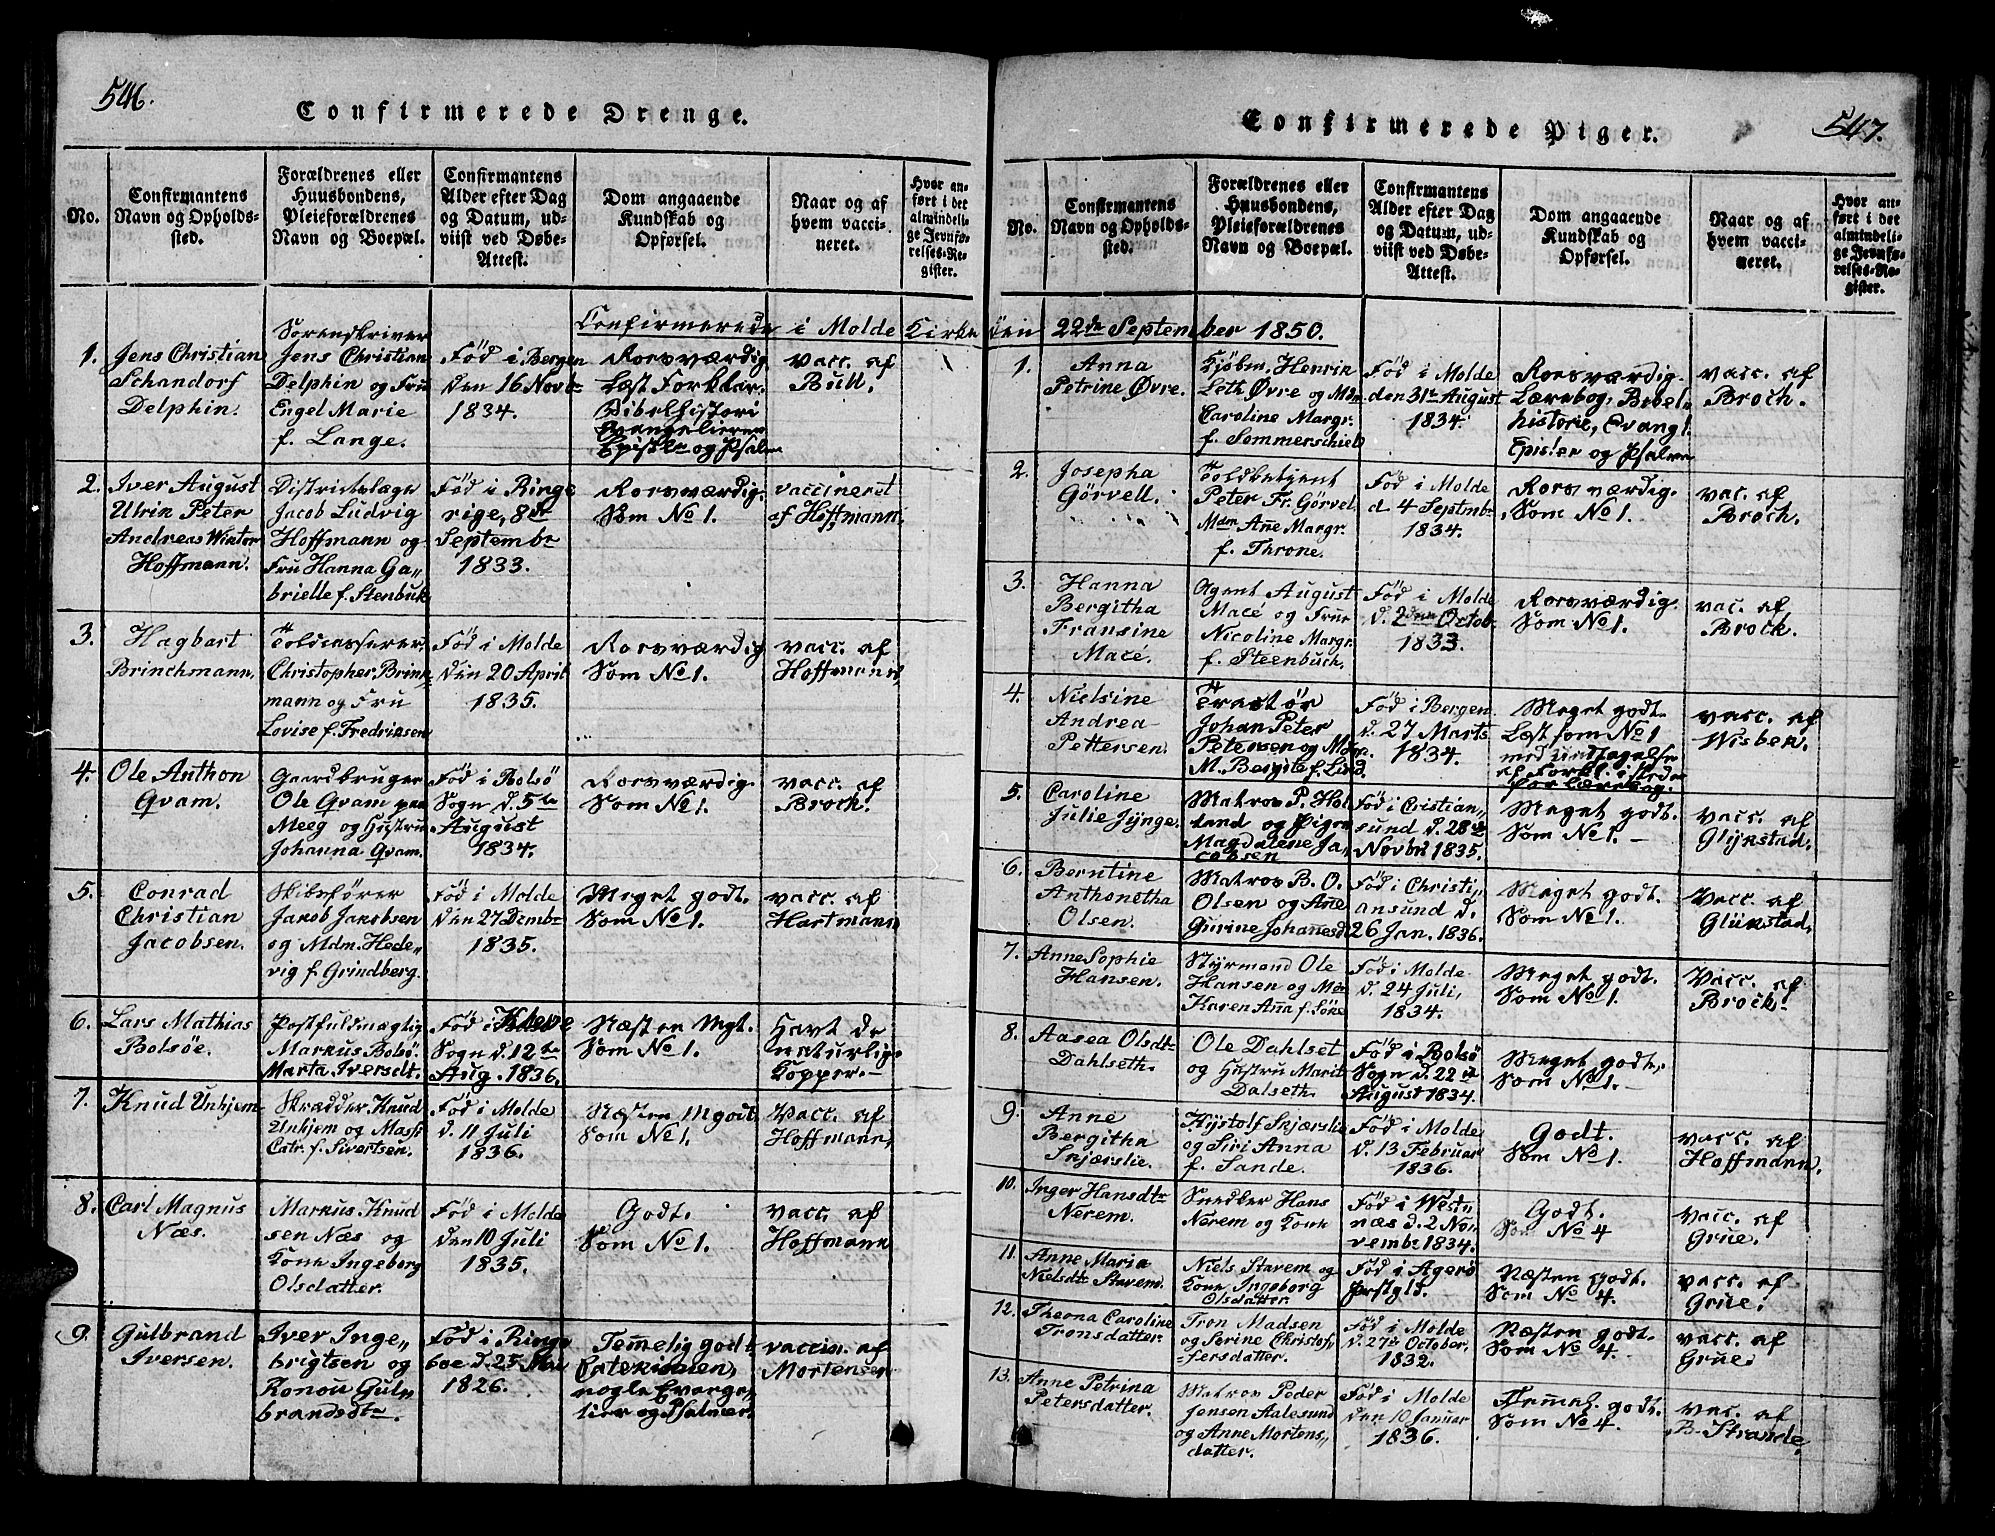 546.
Confirmerede Drenge.
No.
Confirmantens
Navn og Opholds-
sted.
Forældrenes eller
Huusbondens,
Pleieforældrenes
Navn og Boepæl.
Confirmantens
Alder efter Dag
og Datum, ud-
viist ved Døbe-
Attest.
Dom angaaende
Kundskab og
Opførsel.
Naar og af
hvem vacci-
neret.
Hvor an-
ført i det
almindeli-
ge Jevnfø-
relses-Re-
gister.
Confirmerede i Molde Kirke
1.
Jens Christian
Schandorf
Delphin.
Sorenskriver
Jens Christian
Delphin og Fru
Engel Marie
f. Lange.
Fød i Bergen
den 16 Novbr
1834.
Rosværdig
Læst Forklar.
Bibelhistori
Evangelierne
Epistler og Psalm
vacc. af
Bull.
2.
Iver August
Ulrik Peter
Andreas Winter
Hoffmann.
Districtslæge
Jacob Ludvig
Hoffmann og
Fru Hanna Ga„
brielle f. Stenbuk
Fød i Ringe
rige, 8de
Septembr
1833.
Rosværdig.
Som No 1.
vaccineret
af Hoffmann.
3.
Hagbart
Brinchmann,
Toldcasserer
Christopher Brink
mann og Fru
Lovise f. Fredriksen
Fød i Molde
den 20 April
1835.
Rosværdig
Som No 1.
vacc. af
Hoffmann,
4.
Ole Anthon
Qvam.
Gaardbruger
Ole Qvam paa
Meeg og Hustru
Johanna Qvam.
Fød i Bolsö
Sogn d. 5te
August
1834.
Rosværdig.
Som No 1.
vacc. af
Brock.
5.
Conrad
Christian
Jacobsen.
Skibsfører
Jakob Jakobsen
og Mdm. Hede„
vig f. Grindberg.
Fød i Molde
den 27 Dembr
1835.
Meget godt.
Som No 1.
vacc. af
Hartmann
6.
Lars Mathias
Bolsöe.
Postfuldmægtig
Markus Bolsö.
Marta Iversdt.
Fød i Kleve
Sogn d. 12te
Aug. 1836.
Næsten Mgt.
Som No 1.
Havt de
naturlig.
Kopper.-
7.
Knud Unhjem
Skrædder Knud
Unhjem og Mass
Catr. f. Sivertsen.
Fød i Molde
d. 11 Juli
1836.
Næsten M godt
Som No 1.
Vacc. af
Hoffmann,
8.
Carl Magnus
Næs.
Markus Knud
sen Næs og
Kone Ingeborg
Olsdatter.
Fød i Molde
den 10 Juli
1835.
Godt.
Som No 1.
vacc. af
Hoffmann
9.
Gulbrand
Iversen.
Iver Inge„
brigtsen og
Ronou Gul„
brandsdtr.
Fød i Ringe
boe d. 25 Mai
1826.
Temmelig godt
Catekismen,
nogle Evange„
lier og Psalmer.
vaccin. af
Mortensen
547.
Confirmerede Piger.
No.
Confirmantens
Navn og Opholds-
sted.
Forældrenes eller
Huusbondens,
Pleieforældrenes
Navn og Boepæl.
Confirmantens
Alder efter Dag
og Datum, ud-
viist ved Døbe-
Attest.
Dom angaaende
Kundskab og
Opførsel.
Naar og af
hvem vacci-
neret.
Hvor an-
ført i det
almindeli-
ge Jevnfø-
relses-Re-
gister.
den 22de September 1850.
1.
Anna
Petrine Øvre.
Kjöbm. Henrik
Leth Øvre og Mdm
Caroline Margr.
f. Sommerschield
Fød i Molde
den 31te August
1834.
Rosværdig.
Lærebog, Bibel„
historie, Evangl.
Epistler og Psalmer
vacc. af
Broch.
2.
Josepha
Görvell.
Toldbetjent
Peter Fr. Görvel,
Mdm Ane Margr.
f. Throne.
Fød i Molde
d 4 Septmbr
1834.
Rosværdig.
Som No 1.
vac. af
Broch.
3.
Hanna
Bergitha
Fransine
Macé.
Agent August
Macé og Frue
Nicoline Margr.
f. Steenbuch.
Fød i Molde
d. 2den Octob.
1833.
Rosværdig.
Som No 1.
vac. af
Brock.
4.
Nielsine
Andrea
Pettersen.
Johan Peter
Petersen og Mdm.
M. Bergite f. Lind.
Fød i Bergen
d. 27 Marts
1834.
Meget godt.
Læst som No 1
med undtagelse
af Forkl. i steder
for Lærebog.
vacc. af
Wisben.
5.
Caroline
Julie Jynge.
Matros P. Hol
land og Pigen
Magdalene Ja„
cobsen
Fød i Cristian„
sund d. 28de
Novbr 1835.
Meget godt.
Som No 1. -
vacc. af
Glynstad.
6.
Berntine
Anthonetha
Olsen.
Matros B. O.
Olsen og Ane
Gurine Johanesdt
Fød i Christi„
ansund d.
26 Jan. 1836.
Meget godt.
Som No 1.
Vacc. af
Glünstad,
7.
Anne Sophie
Hansen.
Styrmand Ole
Hansen og Mdm
Karen Ana f. Söne
Fød i Molde
d. 24 Juli,
1834.
Meget godt.
Som No 1.
Vacc. af
Brock.
8.
Aasea Olsdtr
Dahlseth.
Ole Dahlset
og Hustru Marit
Dalseth.
Fød i Bolsö
Sogn d. 22de
August 1834.
Meget godt.
Som No 1. -
9.
Anne
Bergitha
Skjærslie.
Thystolf Skjærslie
og Siri Anna
f. Sande.
Fød i Molde
d. 13 Februar
1836.
Godt.
Som No 1.
vacc. af
Hoffmann.
10.
Inger Hansdtr
Nerem.
Snedker Hans
Nerem og Kone
Fød i West„
næs d. 2 No„
vembr 1834.
Godt.
Som No 4
vacc. af
Grue.
11.
Anne Maria
Nielsdtr Stavem.
Niels Stavem og
Kone Ingeborg
Olsdatter.
Fød i Agerö
Prstgld.
Næsten godt.
Som No 4.
vacc. af
Grue.
12.
Theona Caroline
Tronsdatter.
Tron Madsen
og Serine Christof„
fersdatter.
Fød i Molde
d. 27de October,
1832.
Næsten godt.
Som No 4.
vacc. af
Grue.
13.
Anne Petrina
Petersdatter.
Matros Peder
Jensen Aalesund
og Anne Mortens„
datter.
Fød i Molde
den 10 Januar
1836.
Temel. godt.
Som No 4.
vac. af
B. Strande,